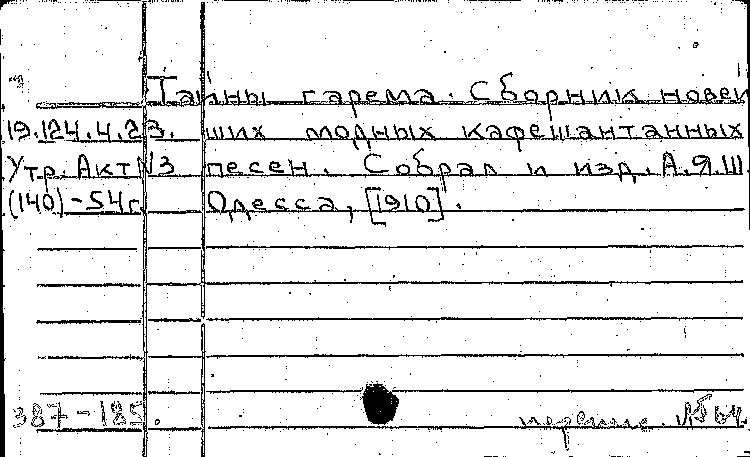 Тайны гарема. Сборник новей
19.124.4.23. ших модных кафешантанных
Утр. Акт №3 песен. Собрал и изд. А.Я.Ш
(140)-54г. Одесса, [1910].
387-185.